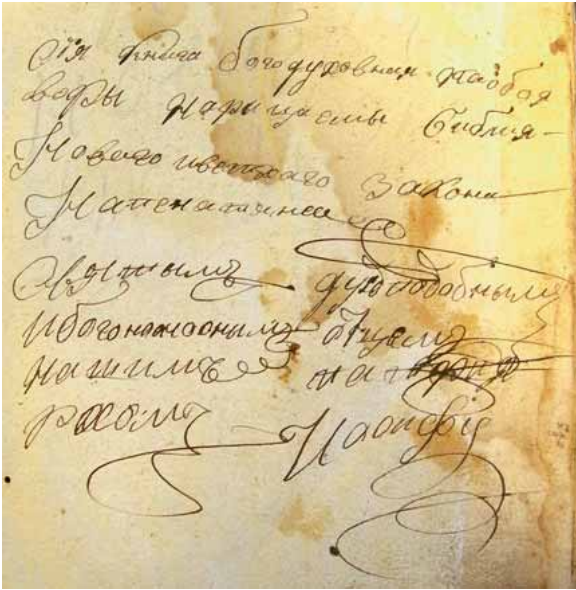 Сїя книга богодуховная
веры нарицаемы библия
Новаго иветхаго закона
Напечатана
Святымъ духоподобнымъ
ибогоносным отцемъ
нашимъ патриа
рхомъ Иосифо